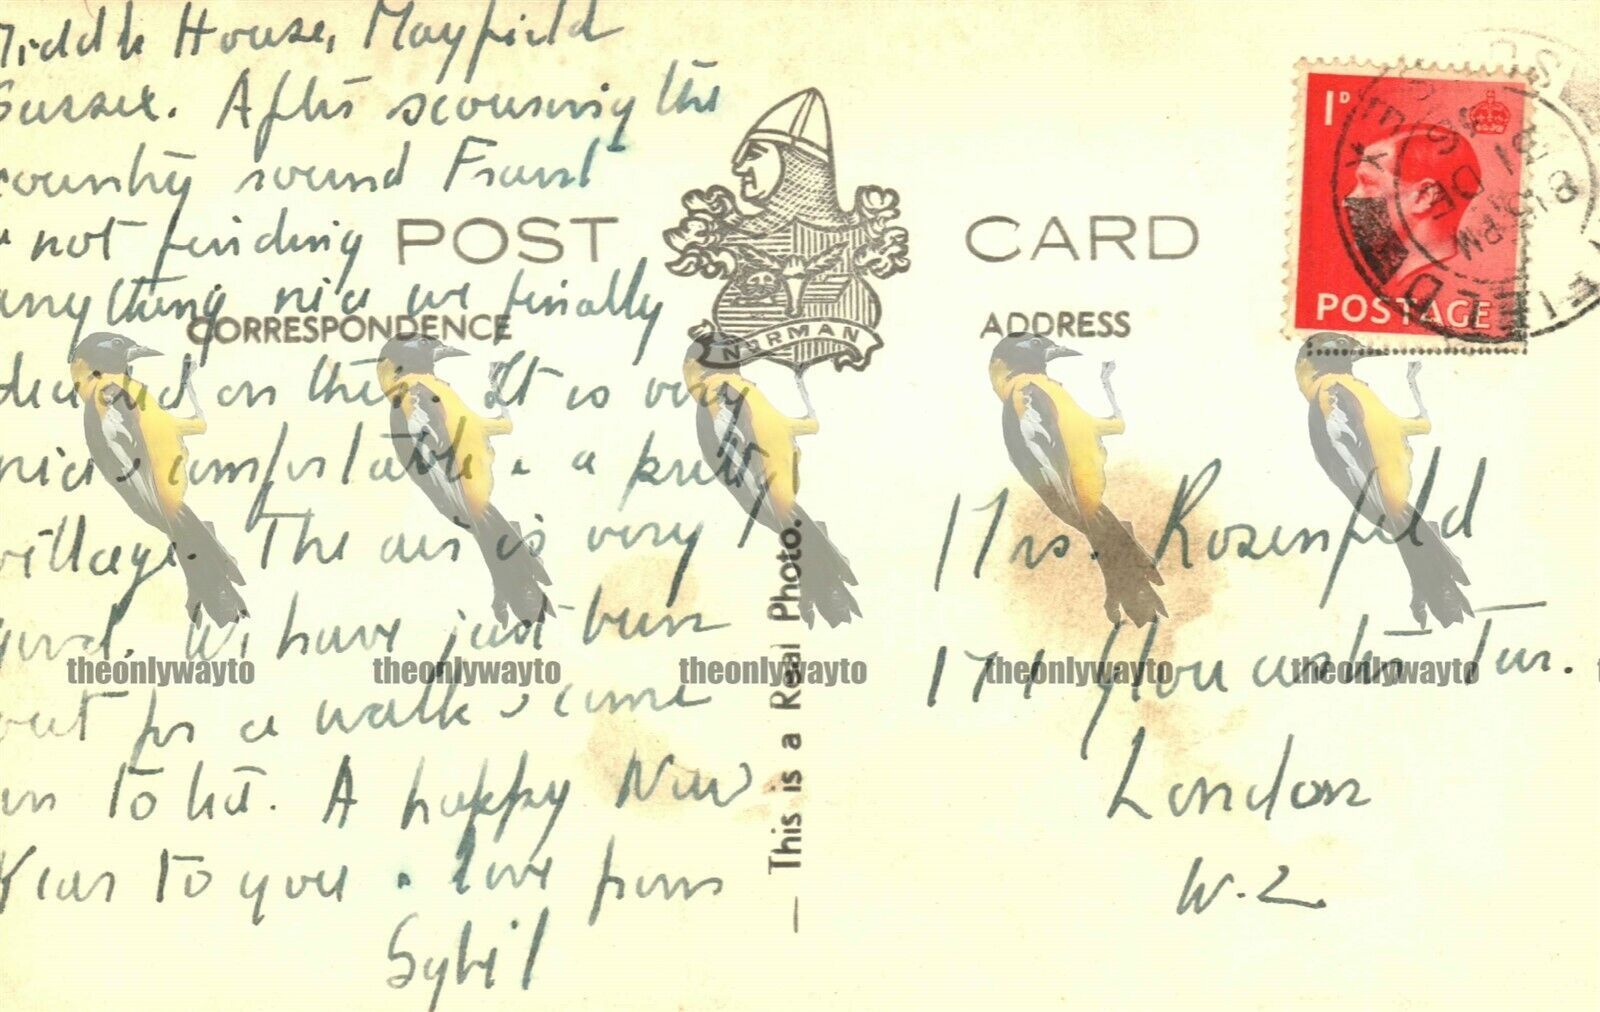 Middle House, Mayfield
Sussex. After scouring the
country round Frant
& not finding
anything nice we finally
decided on this. It is very
nice, comfortable & a pretty
village. The air is very
good. We have just been
out for a walk & come
in to tea. A happy New
Year to you & love from
Sybil
POST CARD
CORRESPONDENCE
ADDRESS
NORMAN
This is a Real Photo.
1D
POSTAGE
FIELD
SUSSEX
8 15 PM
31 DE
Mrs. Rosenfeld
171 Gloucester Ter.
London
W.2
theonlywayto theonlywayto theonlywayto theonlywayto theonlywayto